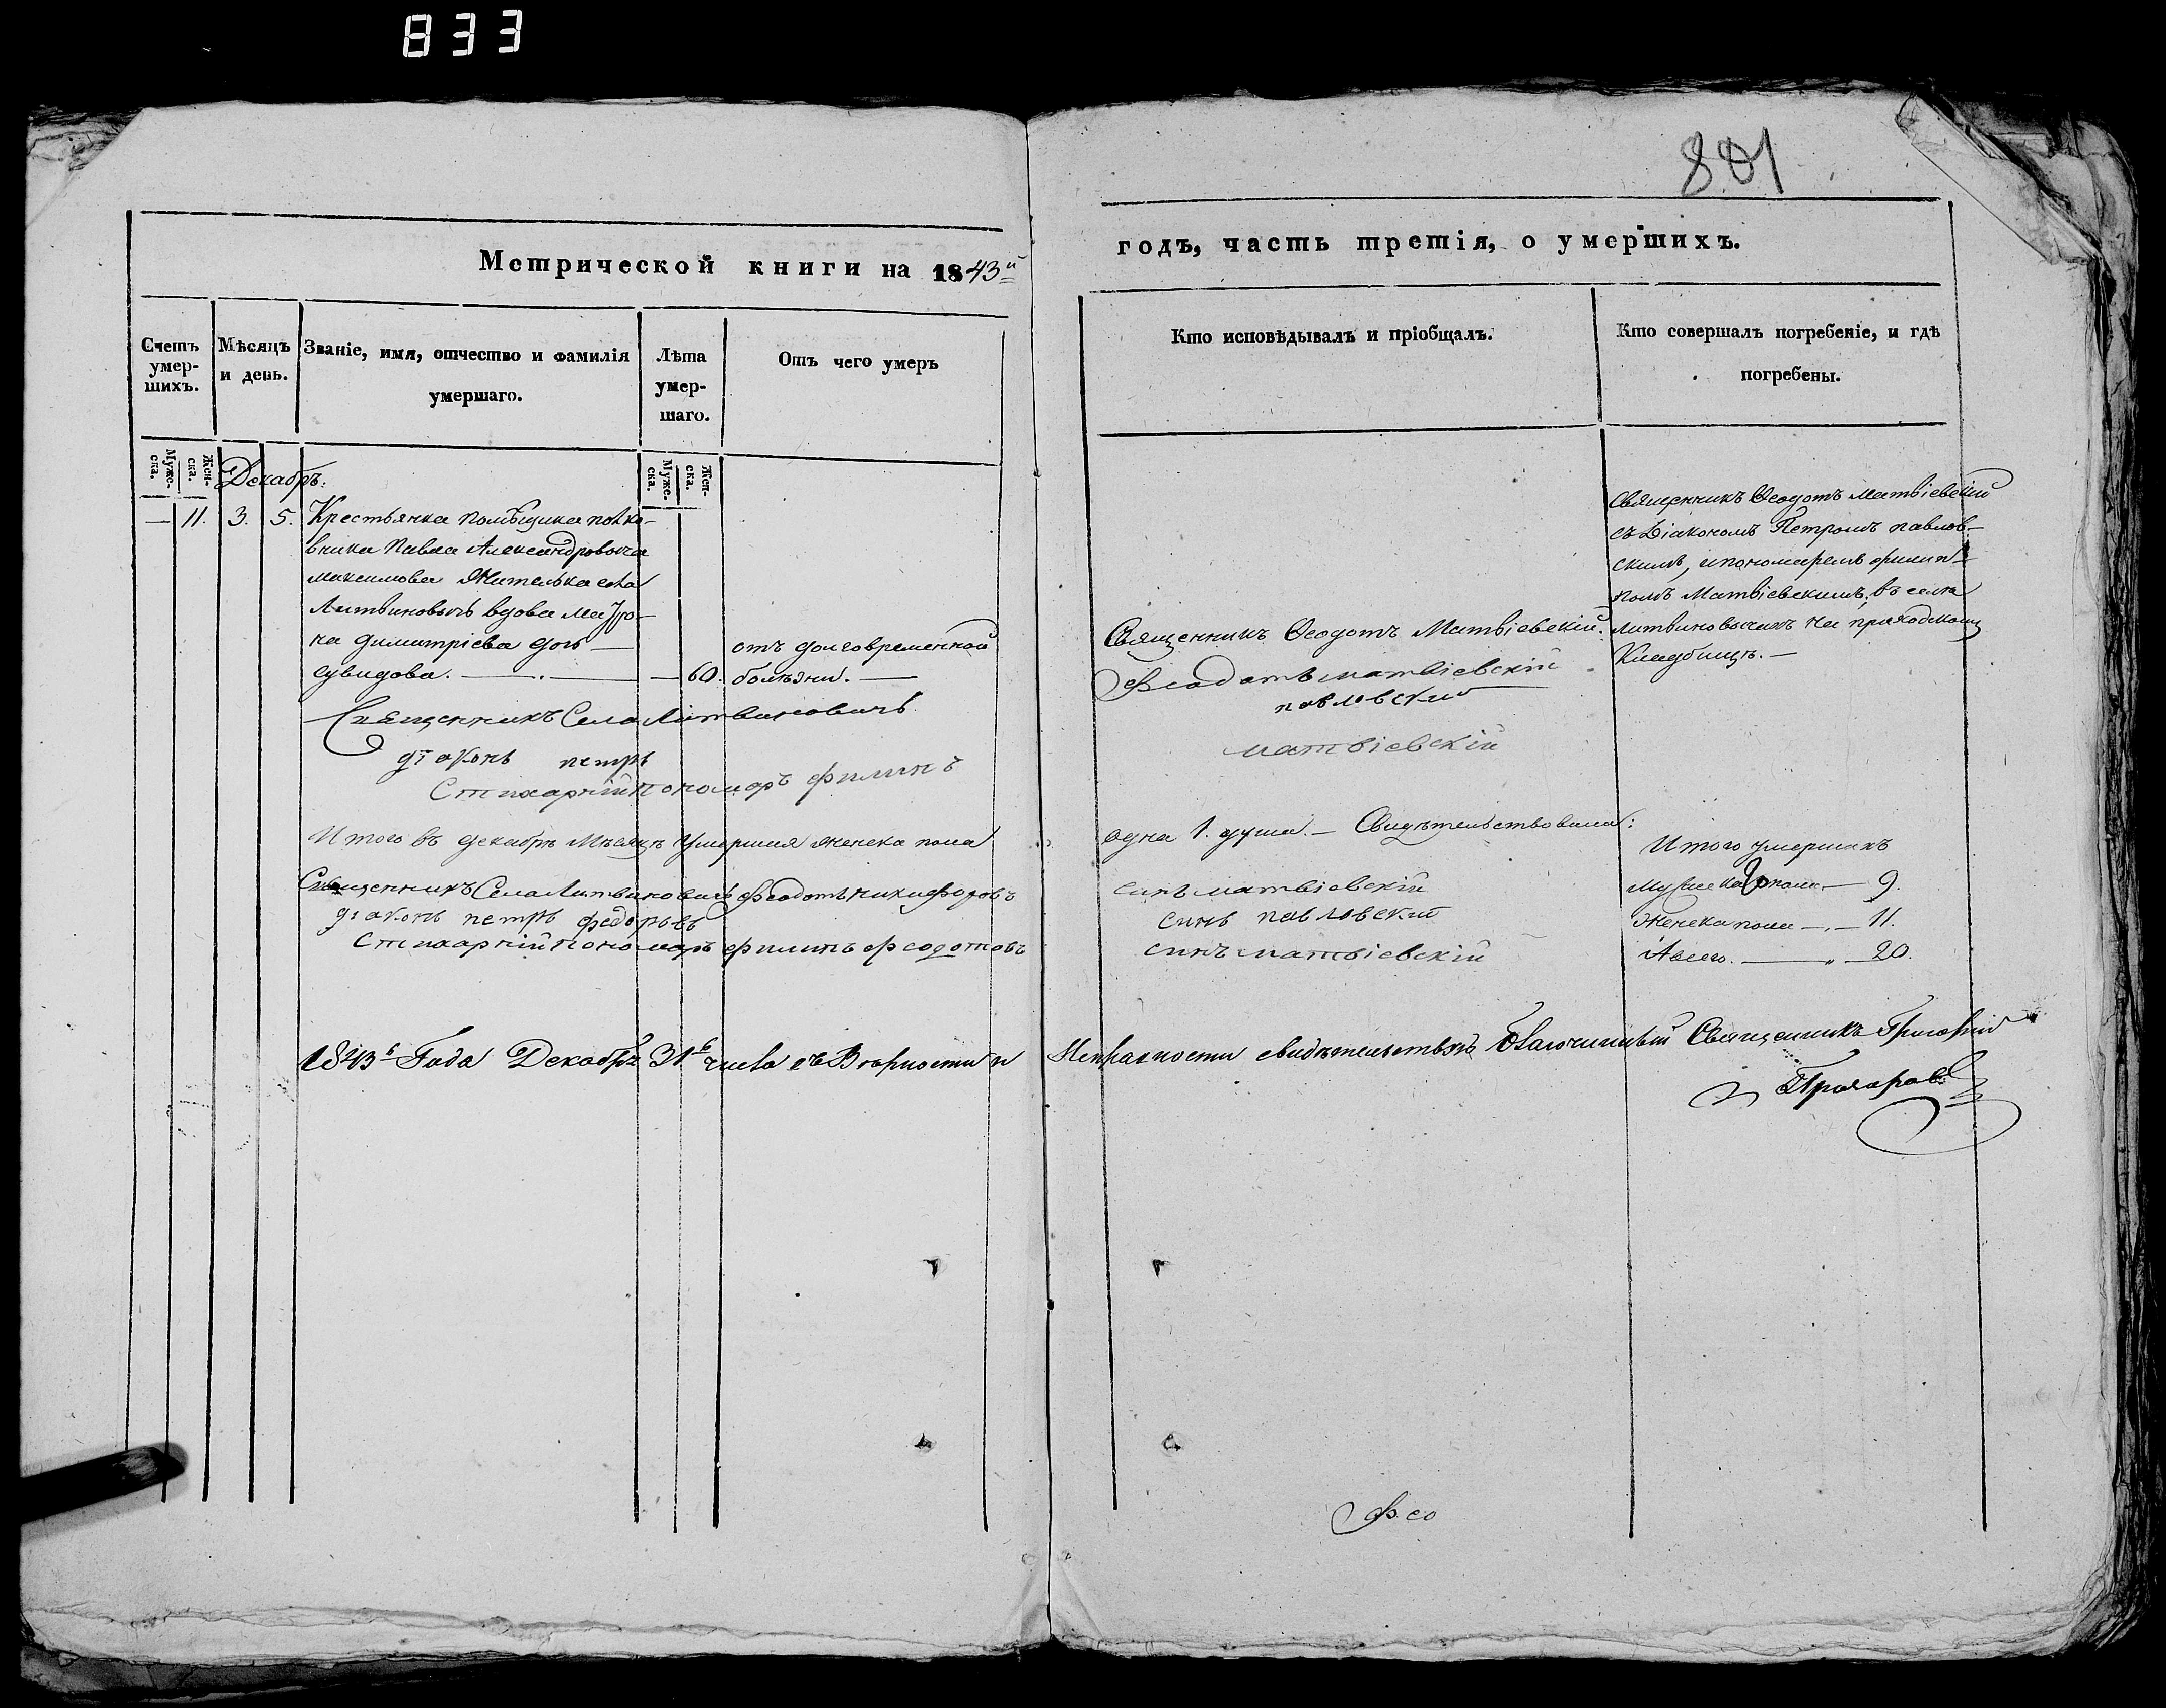 833
801
Метрической книги на 1843й
годъ, часть третія, о умершихъ.
Счетъ умер-шихъ.
Мѣсяцъ и день.
Званіе, имя, отчество и фамилія умершаго.
Лѣта умер-шаго.
Отъ чего умеръ
Кто исповѣдывалъ и пріобщалъ.
Кто совершалъ погребеніе, и гдѣ погребены.
Муже-ска.
Жен-ска.
Муже-ска.
Жен-ска.
Декабрь:
— 11. 3. 5. Крестьянка помѣщика полко-
вника Павла Александровича
Максимова Жителька села
Литвиновичъ вдова Матро-
на Димитріева дочь —
сувидова. — 60.
отъ долговременной
болѣзни. —
Священникъ Ѳеодотъ Матвіевскій.
Священникъ Ѳеодотъ Матвіевскій
съ Діакономъ Петромъ павлов-
скимъ, и пономаремъ филип-
помъ Матвіевскимъ, въ селѣ
литвиновичахъ на приходскомъ
Кладбищѣ. —
Священникъ Села Литвиновичь
Феодотъ матвіевскій
діаконъ петръ
павловский
Стихарній пономаръ филипъ
матвіевскій
Итого въ декабрѣ Мѣсяцѣ умершия женска пола
одна 1. душа. — Свидѣтельствовали:
Священникъ Села Литвиновичь Феодотъ никифоровъ
синъ матвіевскій
діаконъ петръ федоровъ
синъ павловский
Стихарній пономаръ филипъ феодотовъ
синъ матвіевскій
Итого умершихъ
Мужеска пола — 9.
Женска пола — 11.
Всего. — 20.
1843го Года Декабря 31го числа съ Вѣрности и
Исправности свидѣтельствовалъ Благочинный Священникъ Григорій
Фео